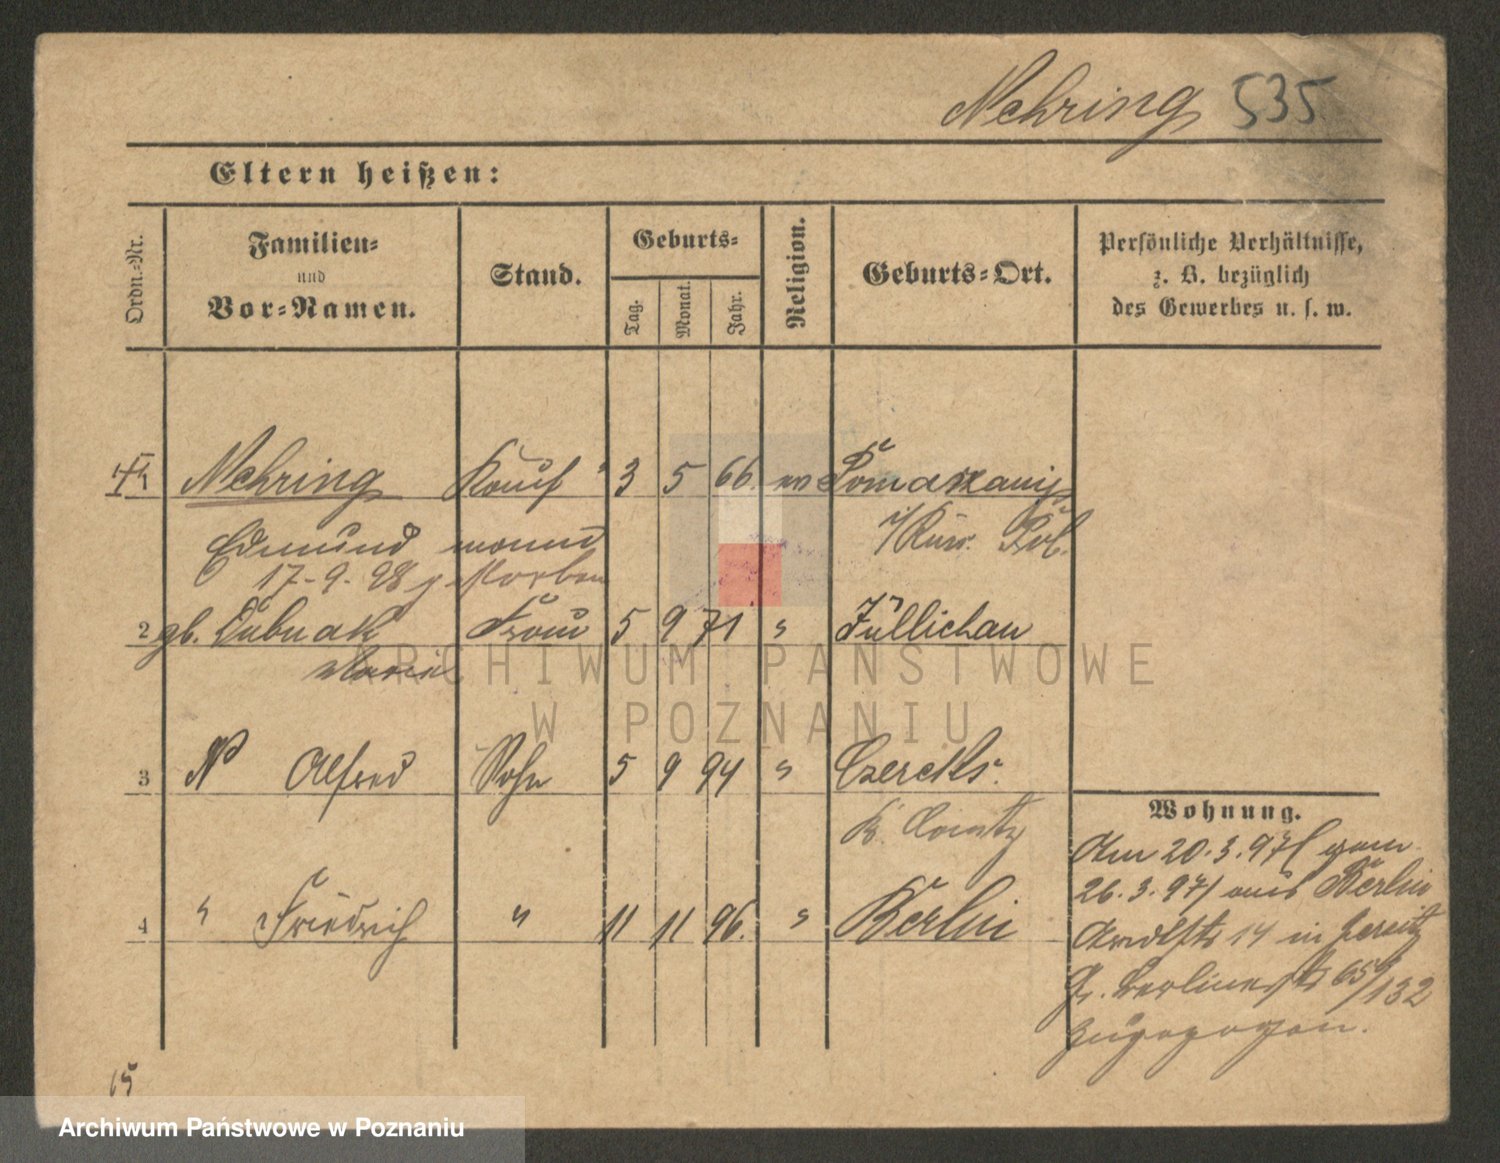 Mehring 535
Eltern heißen:
Ordn.-Nr.
Familien-
und
Vor-Namen.
Stand.
Geburts-
Tag.
Monat.
Jahr.
Religion.
Geburts-Ort.
Persönliche Verhältnisse,
z. B. bezüglich
des Gewerbes u. s. w.
Mehring Kauf 3 5 66.
Edmund mann
17-9-98 gestorben
2 gb. Dubnak Frau 5 9 71 " Züllichau
Marie
ARCHIWUM PAŃSTWOWE
W POZNANIU
3 N Alfred Sohn 5 9 94 "
K.
Wohnung.
Am 20.3.97/ vom
26.3.97/ aus Berlin
14 in
Gr. Berlinerstr 65/132
zugezogen.
4 " Friedrich " 11 11 96. " Berlin
15
Archiwum Państwowe w Poznaniu